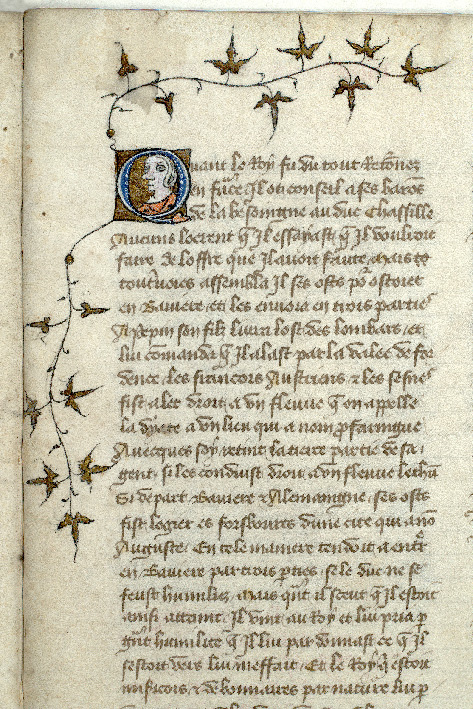 Quant le Roy fu du tout retornez
en frãce Il ot conseil a ses barõs
de la besoingne au duc thassille
Aucuns loerent q̃ Il essayast q̃ Il vouloit
faire de loffre que Il auoit faite mais
touteuoies assembla Il ses osts po² ostoier
en Bauiere et les enuoia en trois parties
A Pepin son filz liura lost des lombars et
lui cõmanda q̃ Il alast par la valee de
les francois Austriens & les
fist aler droit a vn fleuue q̃ on appelle
la a vn lieu qui a nom
Auecques soy retint la tierce partie de sa
gent si les conduist droit a vn fleuue
Si depart Bauiere & Alemaingne ses osts
fist logier es forsbours dune cite qui a nõ
Auguste En tele maniere tendoit a entr̃
en Bauiere par trois p̃ties se le duc ne se
feust humiliez mais quãt il sceut q̃ Il estoit
ainsi attaint Il vint au Roy et lui pria p̱
grãt humilite q̃ Il lui pardonnast ce q̃ Il
sestoit vers lui meffait Et le Roy q̃ estoit
& debonnaires par nature lui p̱